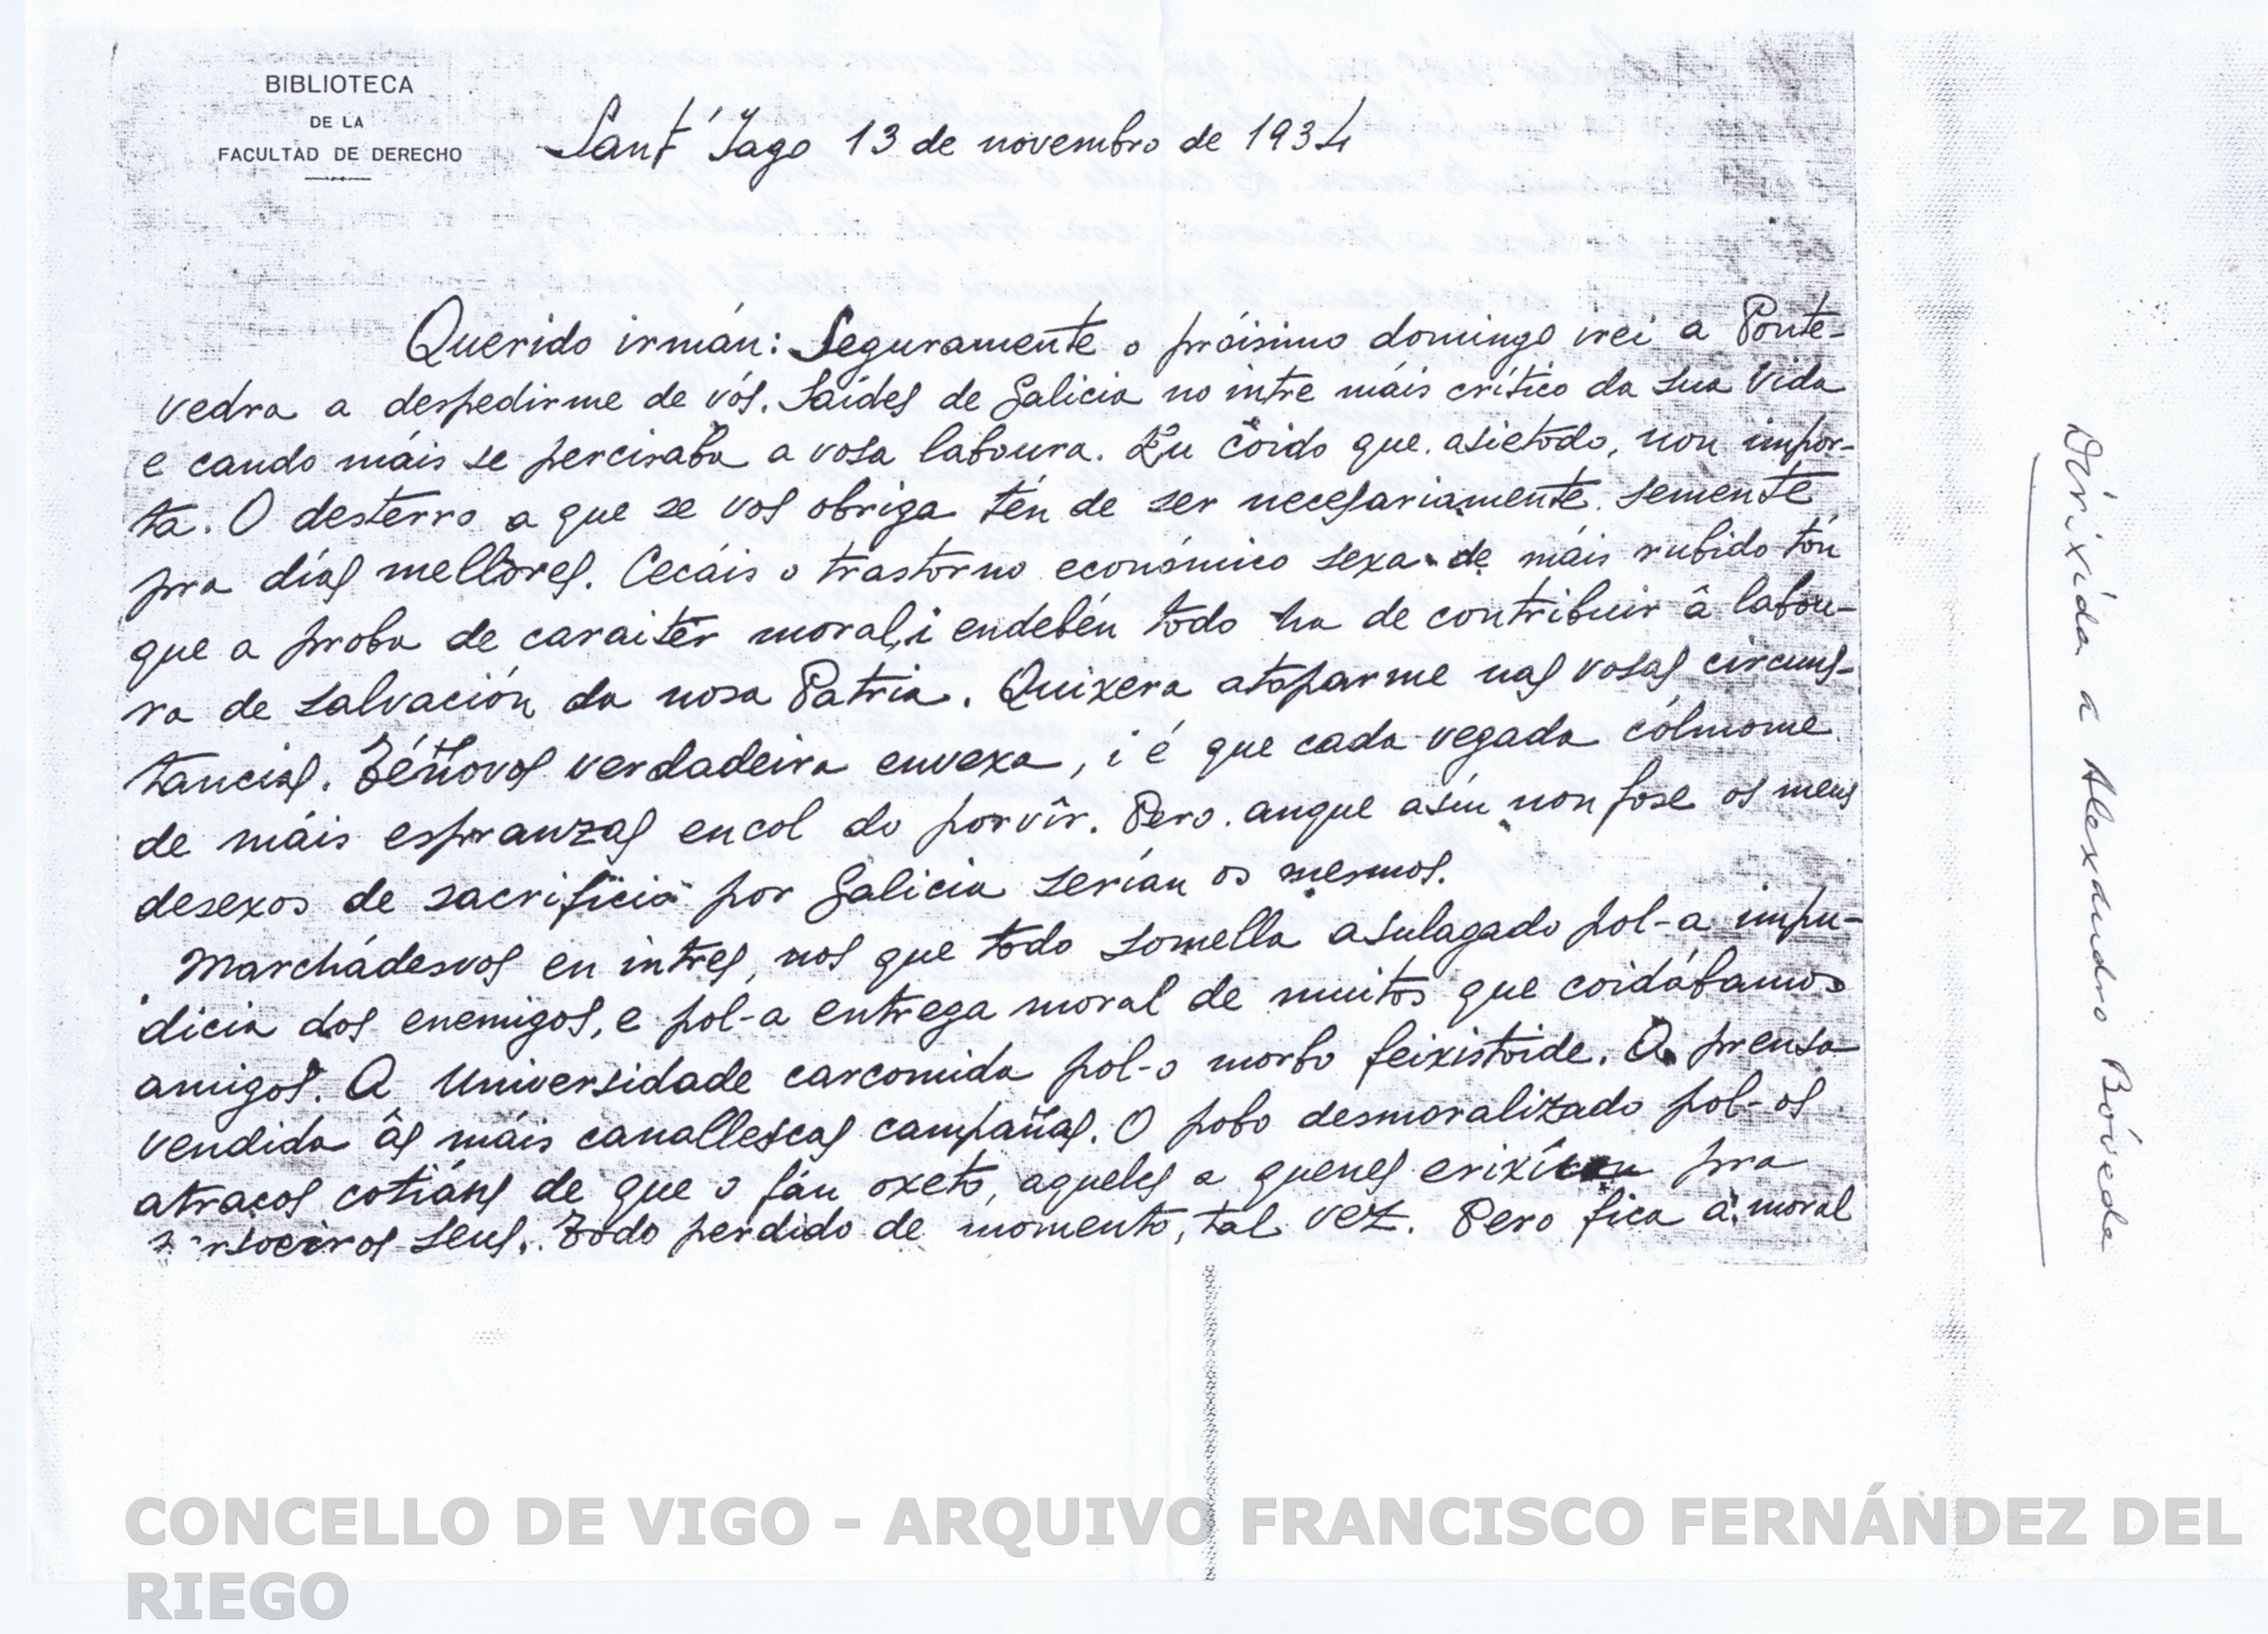 BIBLIOTECA
DE LA
FACULTAD DE DERECHO
Sant'Iago 13 de novembro de 1934
Querido irmán: Seguramente o próisimo domingo irei a Ponte-
vedra a despedirme de vós. Saídes de Galicia no intre máis crítico da sua vida
e cando máis se percisaba a vosa laboura. Eu côido que asietodo, non impor-
ta. O desterro a que se vos obriga tén de ser necesariamente semente
pra días mellores. Cecáis o trastorno económico sexa de máis rubido tón
que a proba de caraiter moral, i endebén todo ha de contribuir â labou-
ra de salvación da nosa Patria. Quixera atoparme nas vosas circuns-
tancias. Téñovos verdadeira envexa, i é que cada vegada cólmome
de máis espranzas encol do porvîr. Pero anque asín non fose os meus
desexos de sacrificio por Galicia serían os mesmos.
Marchádesvos en intres, nos que todo somella asulagado pol-a impu-
dicia dos enemigos, e pol-a entrega moral de muitos que coidábamos
amigos. A Universidade carcomida pol-o morbo feixistoide. A prensa
vendida âs máis canallescas campañas. O pobo desmoralizado pol-os
atracos cotiáns de que o fán oxeto, aqueles a quenes erixíron pra
seus. Todo perdido de momento, tal vez. Pero fica a moral
Dirixida a Alexandro Bóveda
CONCELLO DE VIGO - ARQUIVO FRANCISCO FERNÁNDEZ DEL
RIEGO